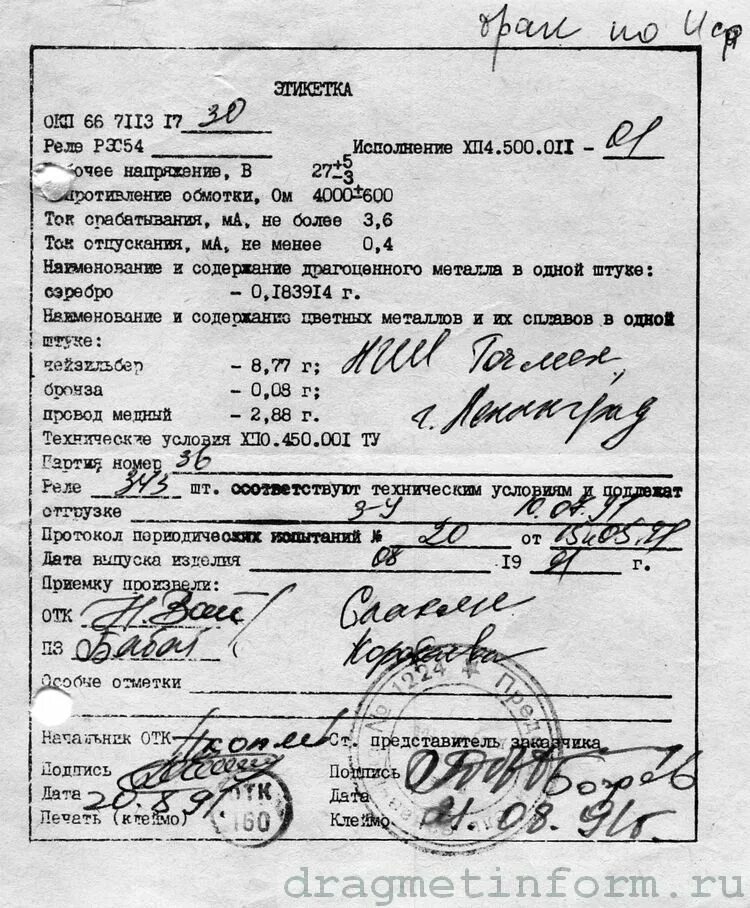 брак по
ЭТИКЕТКА
ОКП 66 7113 17 30
Реле РЭС54 Исполнение ХП4.500.011 - 01
бочее напряжение, В 27+5-3
противление обмотки, Ом 4000±600
Ток срабатывания, мА, не более 3,6
Ток отпускания, мА, не менее 0,4
Наименование и содержание драгоценного металла в одной штуке:
серебро - 0,183914 г.
Наименование и содержание цветных металлов и их сплавов в одной
штуке:
нейзильбер - 8,77 г;
бронза - 0,08 г;
провод медный - 2,88 г.
НИИ Точмех,
г. Ленинград
Технические условия ХП0.450.001 ТУ
Партия номер 36
Реле 343 шт. соответствуют техническим условиям и подлежат
отгрузке 3-У 10.07.91
Протокол периодических испытаний № 20 от 05.91
Дата выпуска изделия 08 19 91 г.
Приемку произвели:
ОТК
ПЗ
Особые отметки
Начальник ОТК Ст. представитель заказчика
Подпись Подпись
Дата 20.8.91 Дата
Печать (клеймо) Клеймо 21.08.91г.
ОТК
160
№ 1224 ★ Пред
dragmetinform.ru